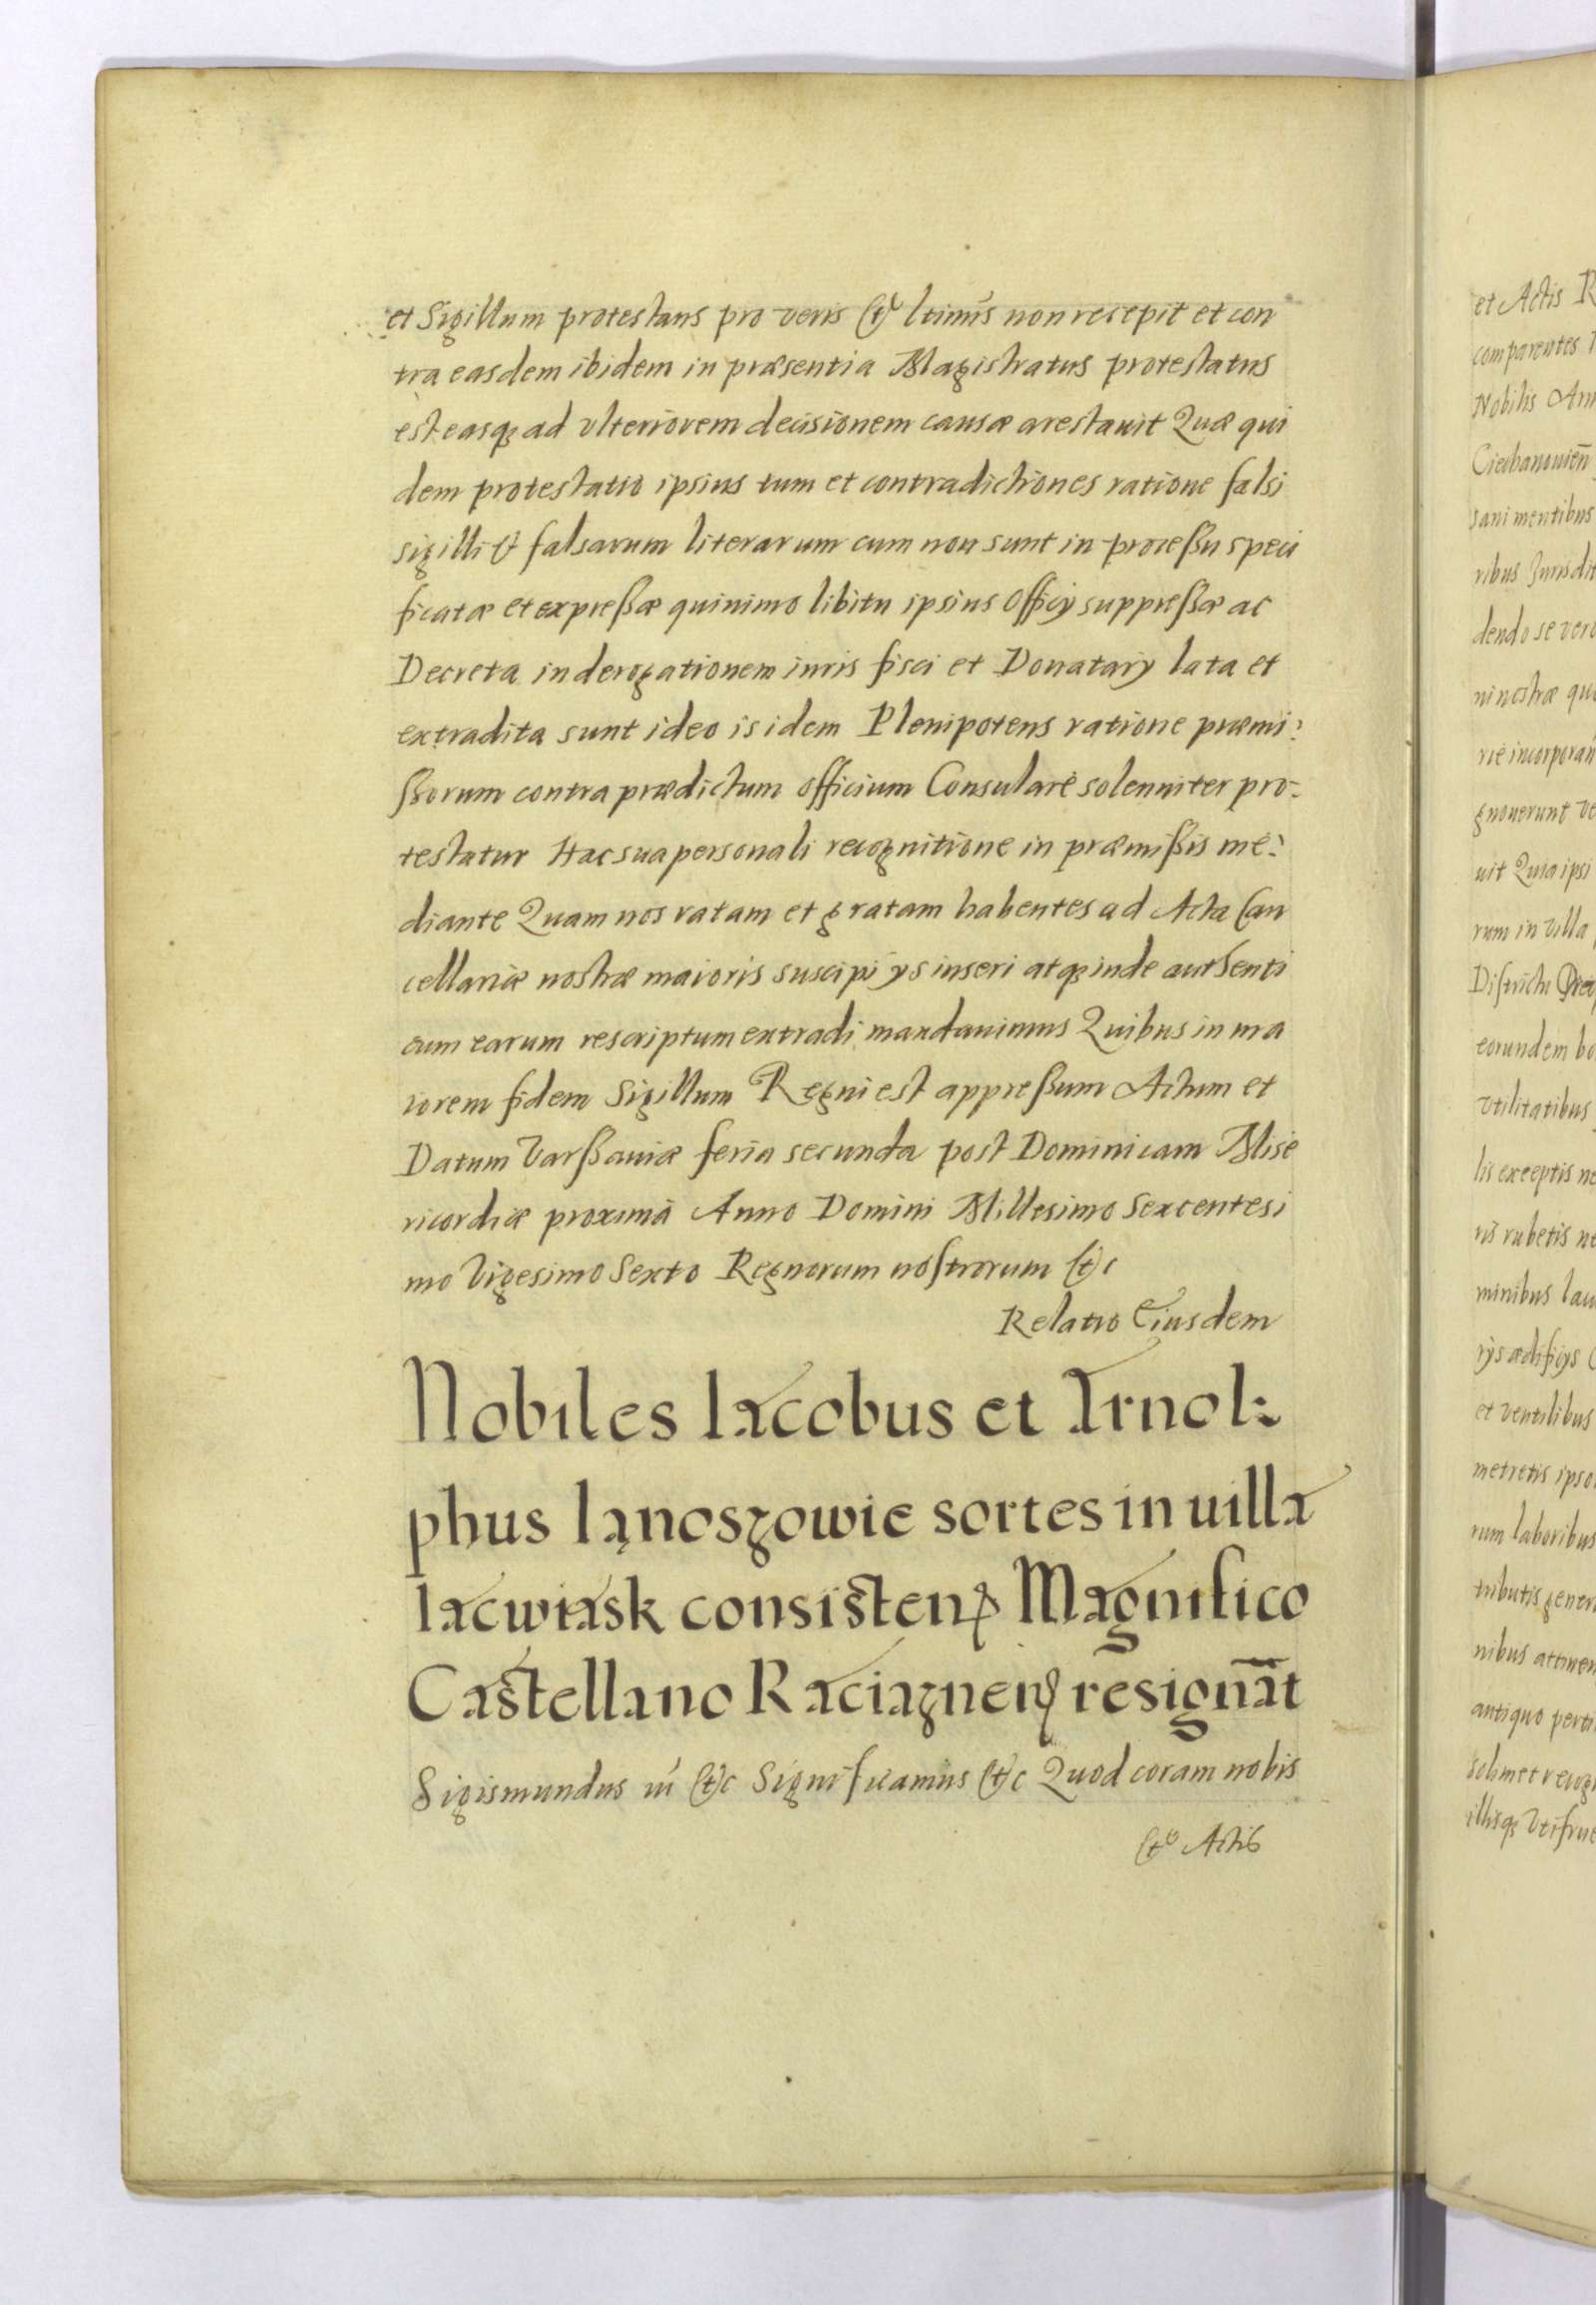 et Sigillum protestans pro veris et ltimis non recepit et con
tra easdem ibidem in præsentia Magistratus protestatus
est easq3 ad vlteriorem decisionem causæ arestauit Quæ qui
dem protestatio ipsius tum et contradictiones ratione falsi
sigilli & falsarum literarum cum non sunt in proceßu speci
ficatæ et expreßæ quinimo libitu ipsius Officÿ suppreßæ ac
Decreta in derogationem iuris fisci et Donatarÿ lata et
extradita sunt ideo is idem Plenipotens ratione præmi:
ßorum contra prædictum Officium Consulare solenniter pro:
testatur Hac sua personali recognitione in præmißis me:
diante Quam nos ratam et gratam habentes ad Acta Can
cellariæ nostræ maioris suscipi ÿs inseri atq3 inde authenti
cum earum rescriptum extradi mandauimus Quibus in ma
iorem fidem Sigillum Regni est appreßum Actum et
Datum Varßauiæ feria secunda post Dominicam Mise
ricordiæ proximā Anno Domini Millesimo Sexcentesi
mo Vigesimo Sexto Regnorum nostrorum etc
Relatio Eiusdem
Nobiles Iacobus et Arnol:
phus Iąnoszowie sortes in uilla
Iacwiask consisten Magnifico
Castellano Raciaznen resignāt
Sigismundus iii etc Significamus etc Quod coram nobis
et Actis
et Actis R
comparentes
Nobilis Ann
Ciecbanouien̄
sani mentibus
ribus Jurisdit
dendo se vero
ni nostræ qu
rie incorporan̄
gnouerunt ve
uit Quia ipsi
rum in villa
Districtu
eorundem bo
vtilitatibus
lis exceptis ne
ris rubetis ne
minibus lacu
rÿs ædificÿs
et ventilibus
metretis ipso
rum laboribus
tributis gener
nibus attinen
antiquo perti
solimet recogn
illisq3 Vtifrue